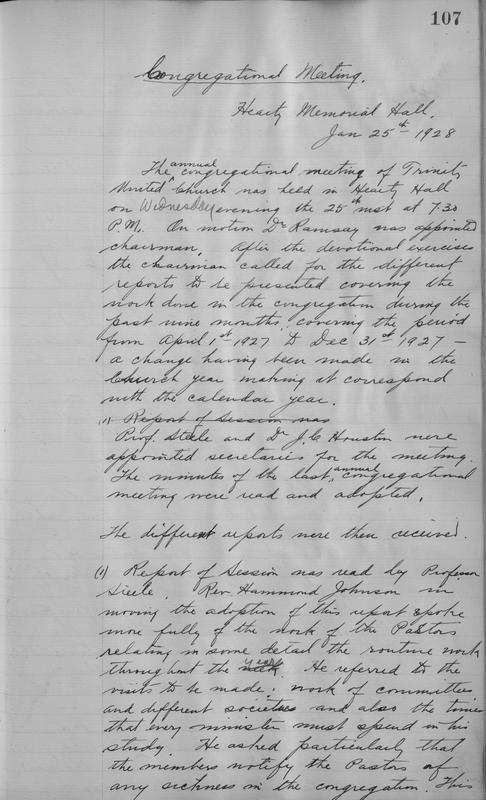 107
Congregational Meeting.
Hearty Memorial Hall.
Jan 25th 1928
The annual congregational meeting of Trinity
United Church was held in Hearty Hall
on Wednesday evening the 25th inst at 7.30
P.M. On motion Dr Ramsay was appointed
chairman. After the devotional exercises
the chairman called for the different
reports to be presented covering the
work done in the congregation during the
past nine months, covering the period
from April 1st 1927 to Dec 31st 1927 —
a change having been made in the
Church year making it correspond
with the calendar year.
(1) Report of Session was
Prof. Steele and Dr J. C. Houston were
appointed secretaries for the meeting.
The minutes of the last annual congregational
meeting were read and adopted.
The different reports were then received.
(1) Report of Session was read by Professor
Steele. Rev. Hammond Johnson in
moving the adoption of this report spoke
more fully of the work of the Pastors
relating in some detail the routine work
throughout the week year. He referred to the
visits to be made; work of committees
and different societies and also the time
that every minister must spend in his
study. He asked particularly that
the members notify the Pastors of
any sickness in the congregation. This